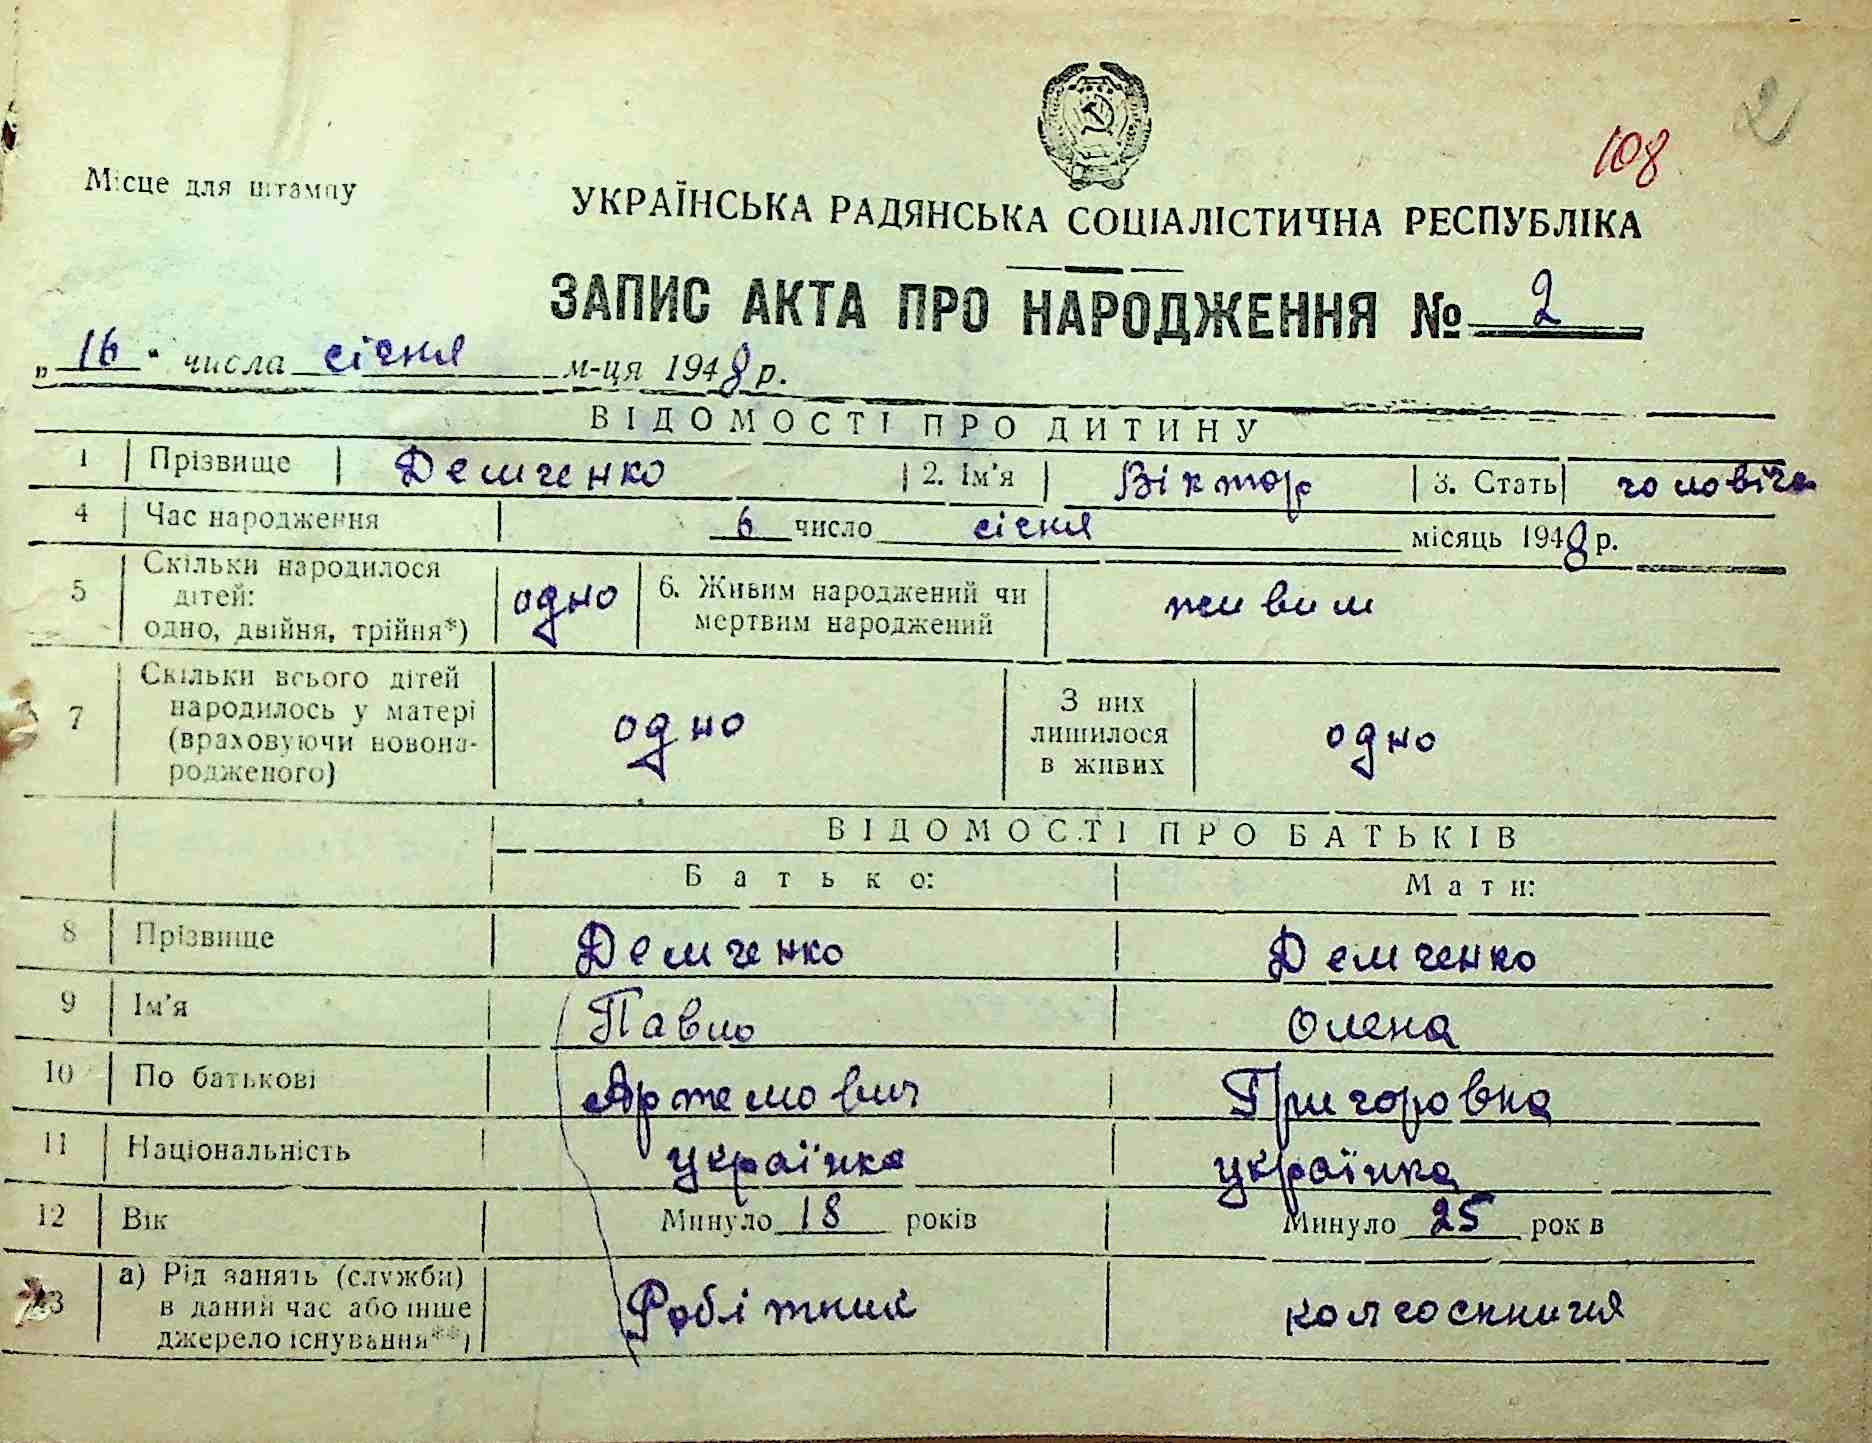 2
108
Місце для штампу
УКРАЇНСЬКА РАДЯНСЬКА СОЦІАЛІСТИЧНА РЕСПУБЛІКА
ЗАПИС АКТА ПРО НАРОДЖЕННЯ № 2
„16" числа січня м-ця 1948 р.
ВІДОМОСТІ ПРО ДИТИНУ
1 Прізвище Демченко 2. Ім'я Віктор 3. Стать чоловіча
4 Час народження 6 число січня місяць 1948 р.
5 Скільки народилося дітей: одно, двійня, трійня*) одно 6. Живим народжений чи мертвим народжений живим
7 Скільки всього дітей народилось у матері (враховуючи новона-родженого) одно З них лишилося в живих одно
ВІДОМОСТІ ПРО БАТЬКІВ
Батько: Мати:
8 Прізвище Демченко Демченко
9 Ім'я Павло Олена
10 По батькові Артемович Григоровна
11 Національність українка українка
12 Вік Минуло 18 років Минуло 25 років
13 а) Рід занять (служби) в даний час або інше джерело існування**) Робітник колгоспниця